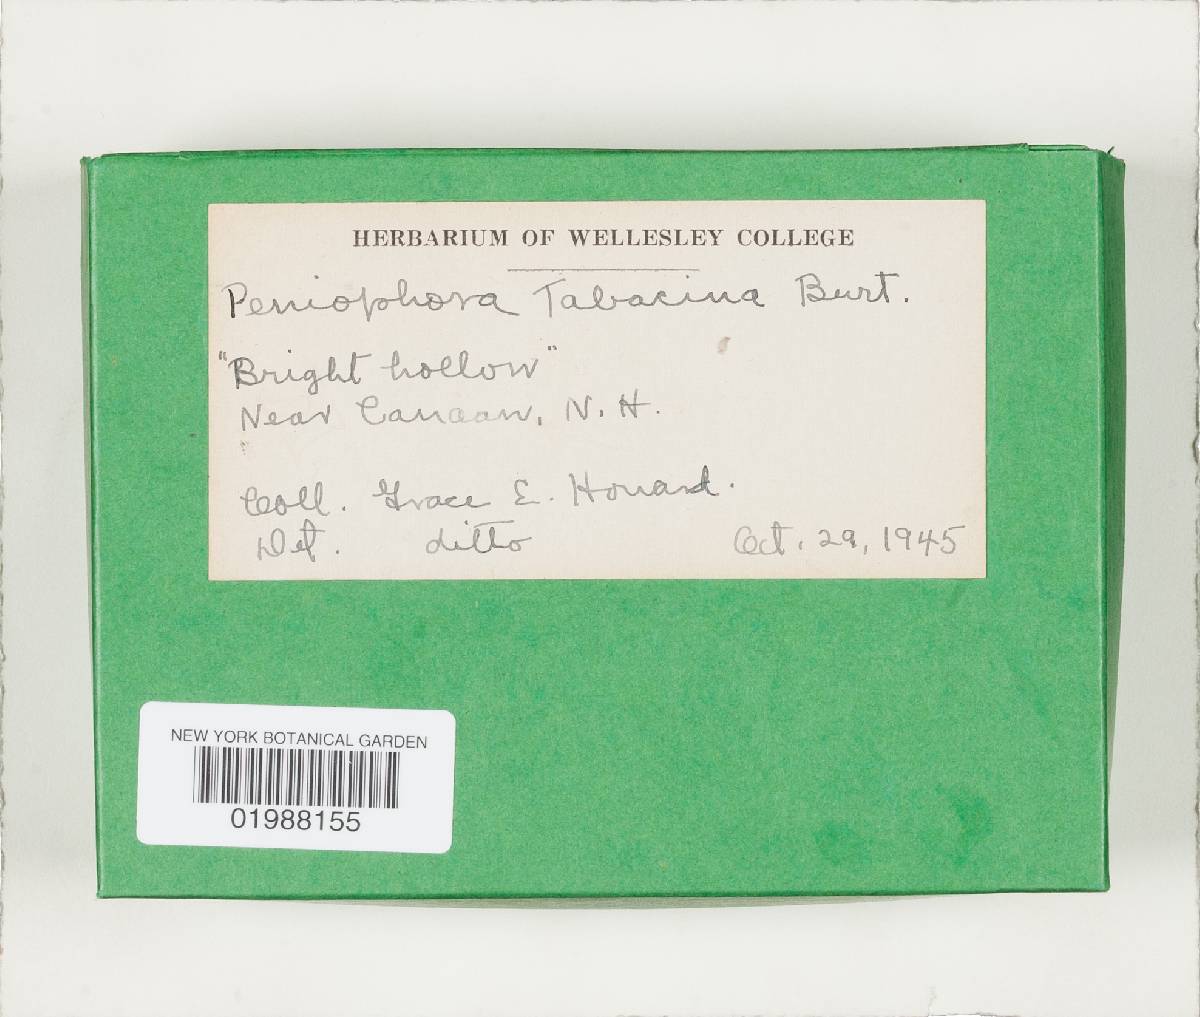 HERBARIUM OF WELLESLEY COLLEGE
Peniophora Tabacina Burt.
"Bright hollow"
Near Canaan, N.H.
Coll. Grace E. Howard.
Det. ditto Oct. 29, 1945
NEW YORK BOTANICAL GARDEN
01988155